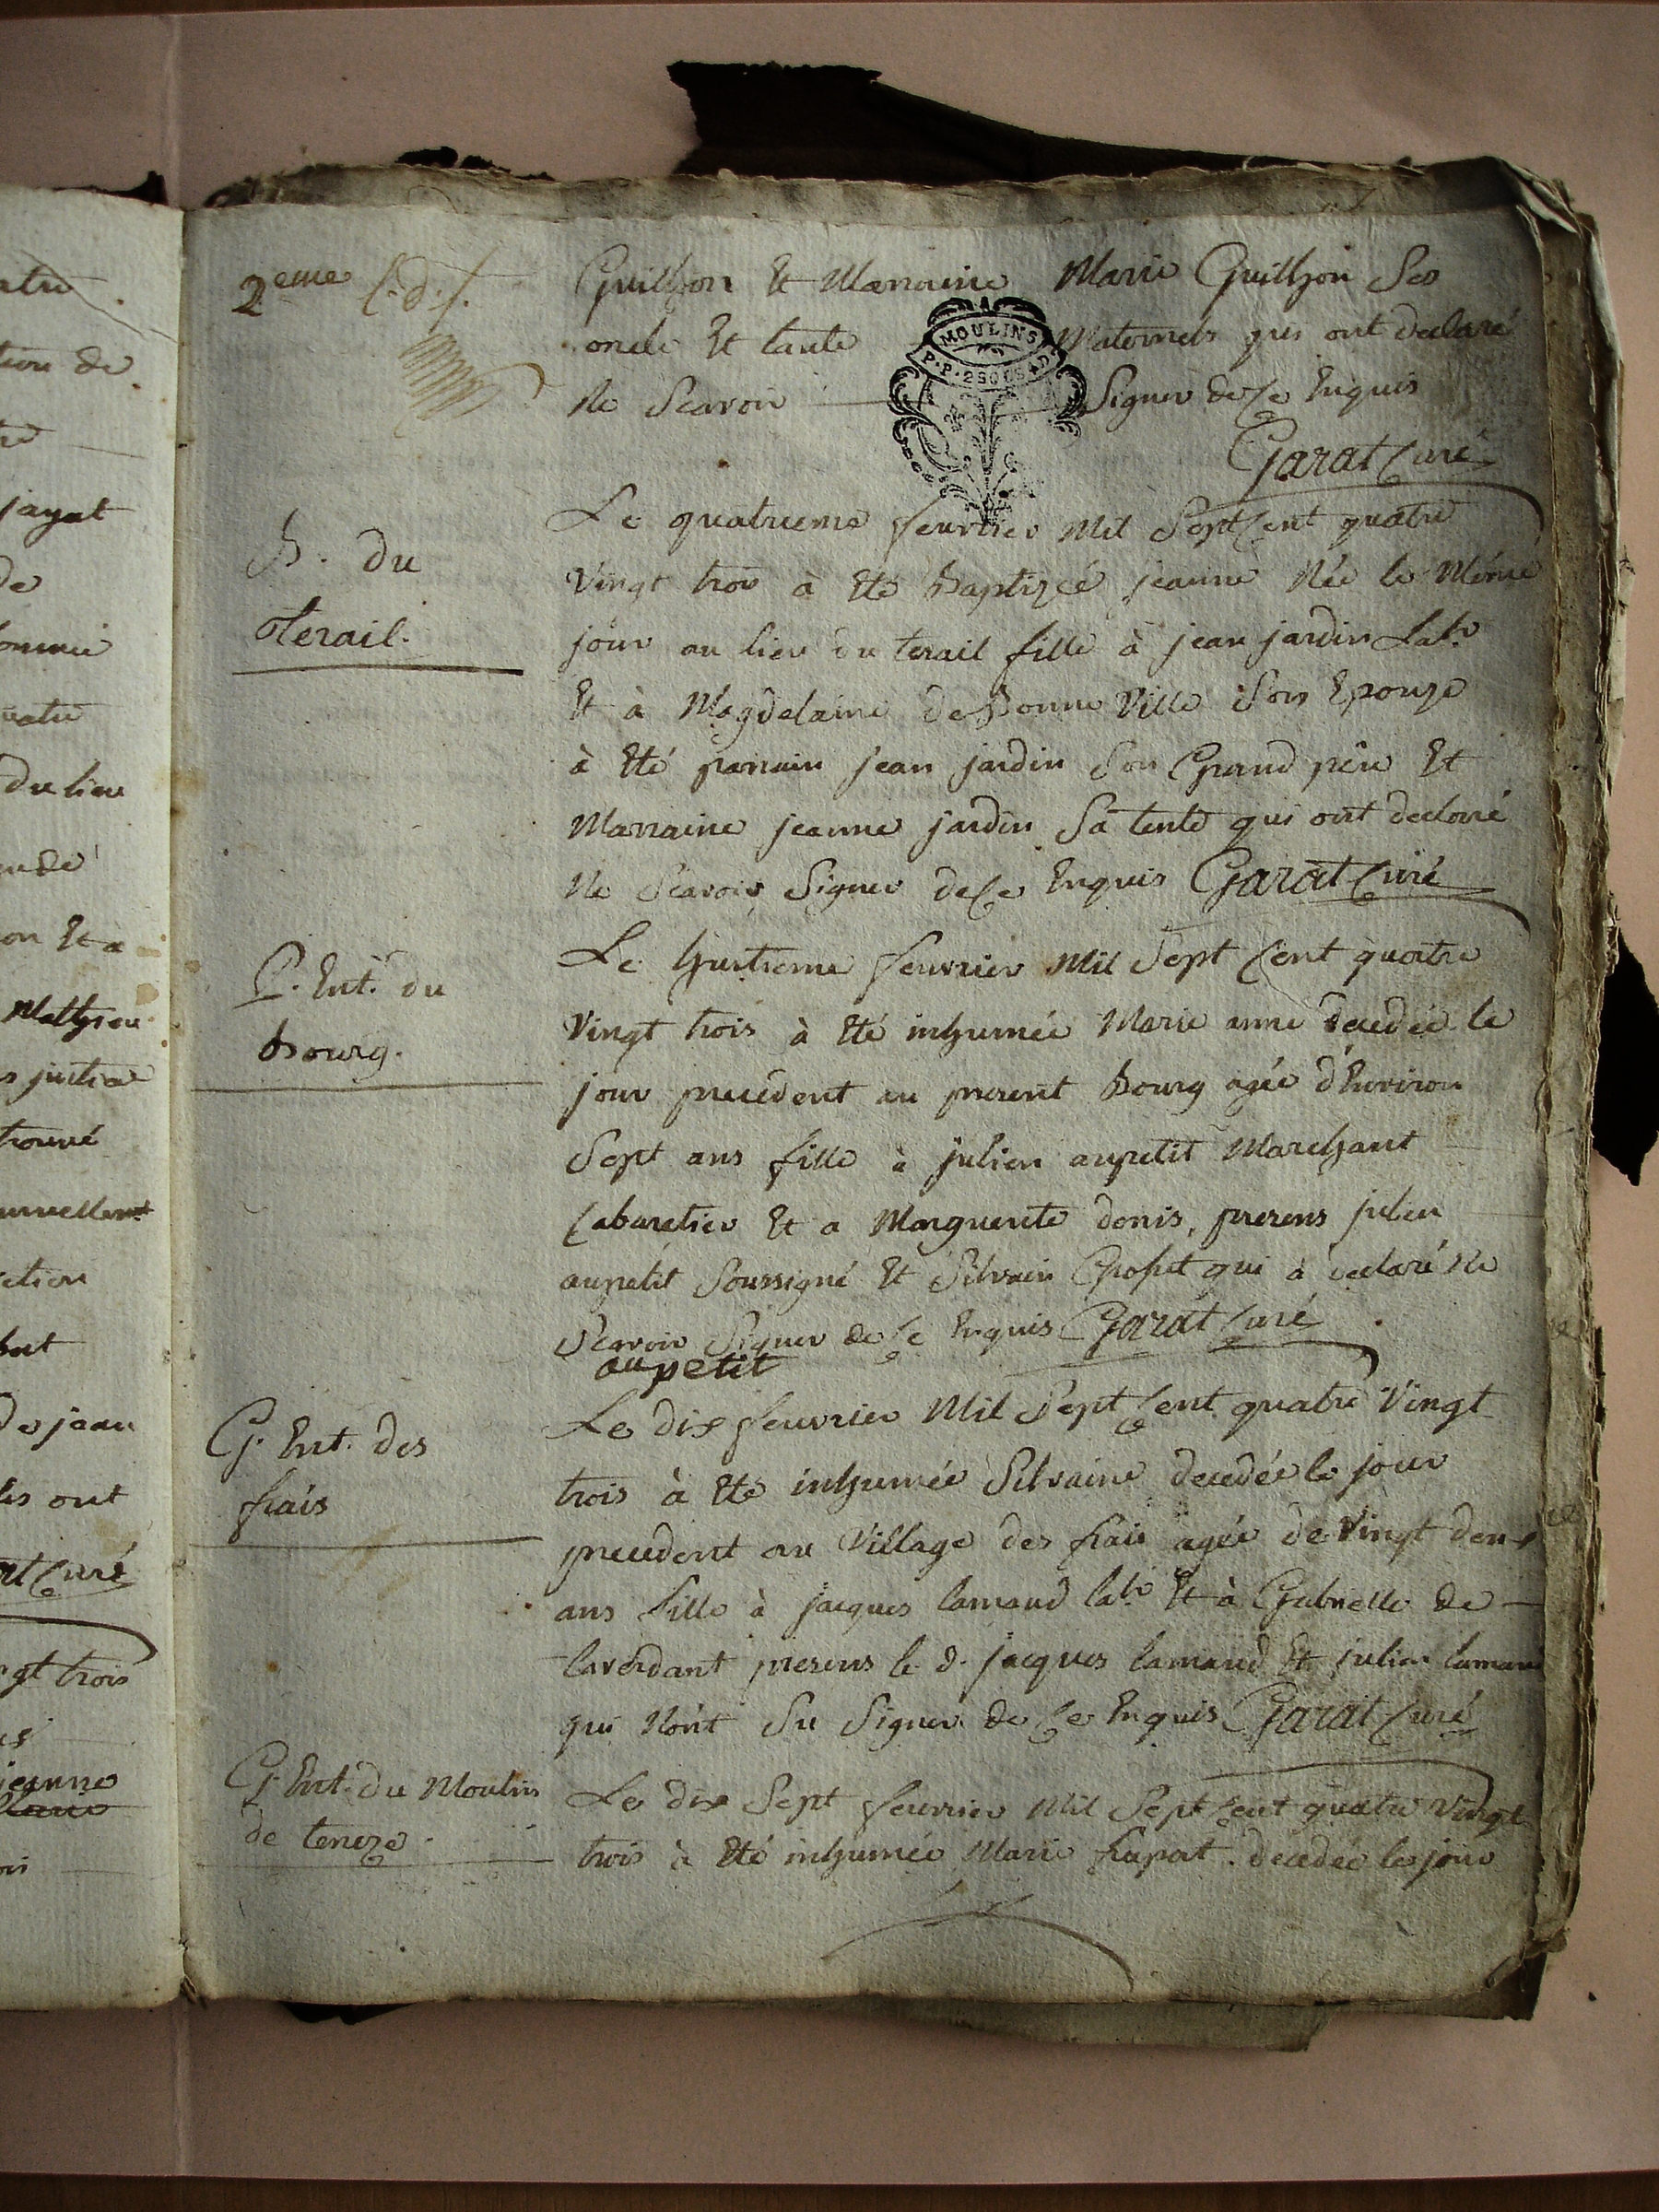 2eme
Guilhon Et Marraine Marie Guilhon Ses
oncle Et tante Maternels qui ont declaré
Ne Scavoir Signer de Ce Enquis
Garat Curé
MOULINS
B. du
Terail.
Le quatrieme feuvrier Mil Sept Cent quatre
Vingt trois à Eté baptizeé jeanne Née le Méme
jour au lieu du terail fille à jean jardin Labr
Et à Magdelaine de Bonne Ville Son Epouze
à Eté parrain jean jardin Son Grand pére Et
Marraine jeanne jardin Sa tente qui ont declaré
Ne Scavoir Signer de Ce Enquis Garat Curé
P. Ent. du
bourg.
Le huitieme feuvrier Mil Sept Cent quatre
Vingt trois à Eté inhumée Marie anne decedée le
jour precedent au present bourg agée d'Environ
Sept ans fille à julien aupetit Marchant
Cabaretier Et a Marguerite denis, presens julien
aupetit Soussigné Et Silvain qui à declaré Ne
Scavoir Signer de Ce Enquis Garat Curé
aupetit
G. Ent. des
frais
Le dix feuvrier Mil Sept Cent quatre Vingt
trois à Eté inhumée Silvaine decedée le jour
precedent au Village des frais agée de Vingt deux
ans fille à jacques lamaud labr Et à Gabrielle de
laverdant presens le d. jacques lamaud Et julien lamaud
qui N'ont Su Signer de Ce Enquis Garat Curé
G. Ent. du Moulin
de teneze
Le dix Sept feuvrier Mil Sept Cent quatre Vingt
trois à Eté inhumée Marie frapat decedée le jour